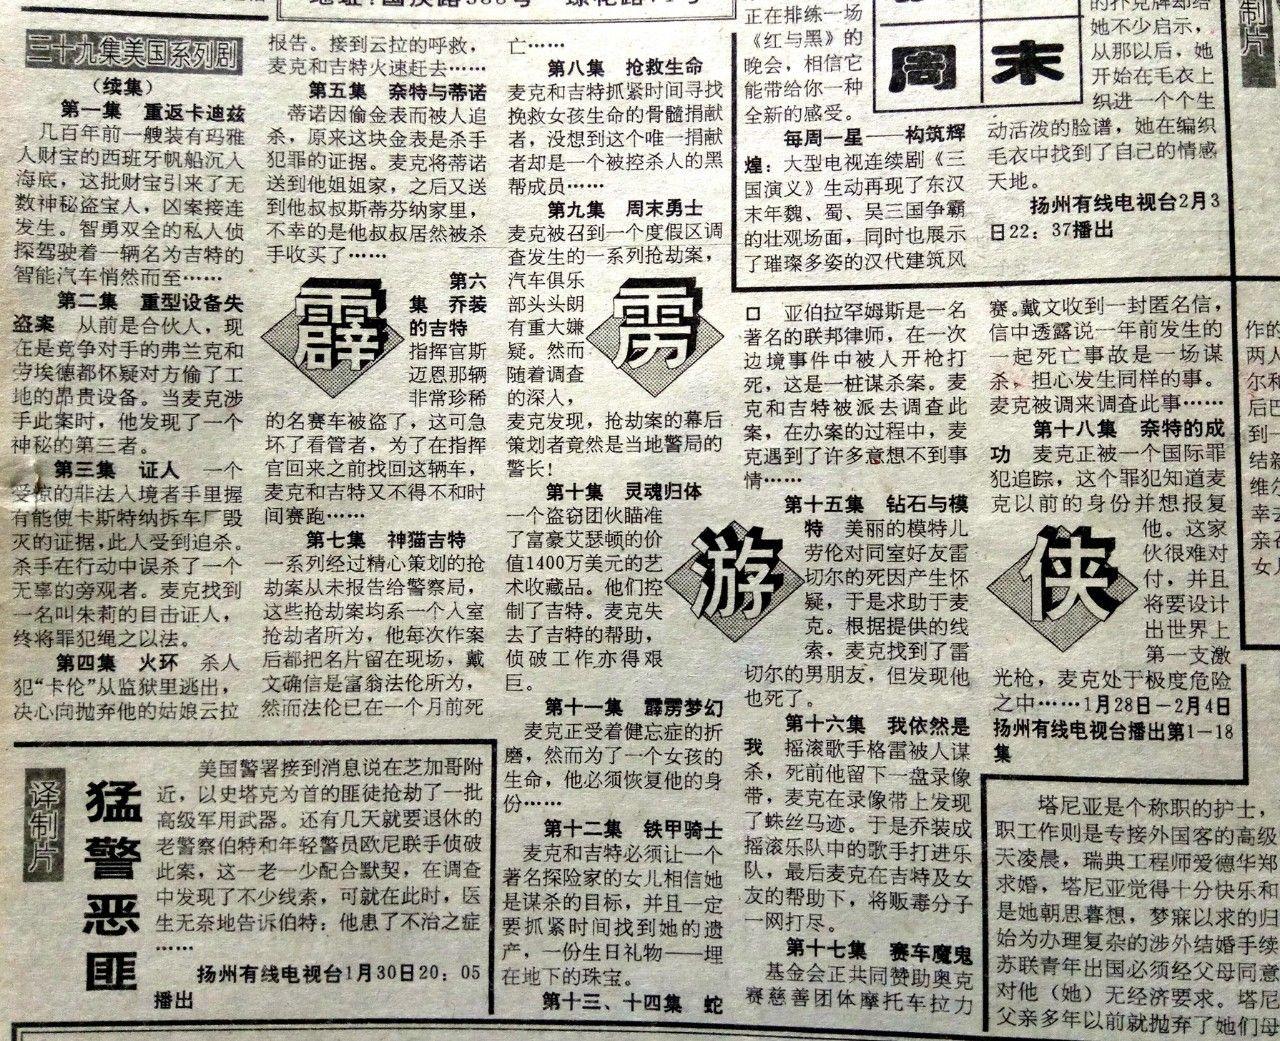 三十九集美国系列剧
(续集)
第一集 重返卡迪兹
几百年前一艘装有玛雅
人财宝的西班牙帆船沉入
海底，这批财宝引来了无
数神秘盗宝人，凶案接连
发生。智勇双全的私人侦
探驾驶着一辆名为吉特的
智能汽车悄然而至……
第二集 重型设备失
盗案 从前是合伙人，现
在是竞争对手的弗兰克和
劳埃德都怀疑对方偷了工
地的昂贵设备。当麦克涉
手此案时，他发现了一个
神秘的第三者。
第三集 证人 一个
受惊的非法入境者手里握
有能使卡斯特纳拆车厂毁
灭的证据，此人受到追杀。
杀手在行动中误杀了一个
无辜的旁观者。麦克找到
一名叫朱莉的目击证人，
终将罪犯绳之以法。
第四集 火环 杀人
犯“卡伦”从监狱里逃出，
决心向抛弃他的姑娘云拉
报告。接到云拉的呼救，
麦克和吉特火速赶去……
第五集 奈特与蒂诺
蒂诺因偷金表而被人追
杀，原来这块金表是杀手
犯罪的证据。麦克将蒂诺
送到他姐姐家，之后又送
到他叔叔斯蒂芬纳家里，
不幸的是他叔叔居然被杀
手收买了……
第六
集 乔装
的吉特
指挥官斯
迈恩那辆
非常珍稀
的名赛车被盗了，这可急
坏了看管者，为了在指挥
官回来之前找回这辆车，
麦克和吉特又不得不和时
间赛跑……
第七集 神猫吉特
一系列经过精心策划的抢
劫案从未报告给警察局，
这些抢劫案均系一个入室
抢劫者所为，他每次作案
后都把名片留在现场，戴
文确信是富翁法伦所为，
然而法伦已在一个月前死
亡……
第八集 抢救生命
麦克和吉特抓紧时间寻找
挽救女孩生命的骨髓捐献
者，没想到这个唯一捐献
者却是一个被控杀人的黑
帮成员……
第九集 周末勇士
麦克被召到一个度假区调
查发生的一系列抢劫案，
汽车俱乐
部头头朗
有重大嫌
疑。然而
随着调查
的深入，
麦克发现，抢劫案的幕后
策划者竟然是当地警局的
警长！
第十集 灵魂归体
一个盗窃团伙瞄准
了富豪艾瑟顿的价
值1400万美元的艺
术收藏品。他们控
制了吉特。麦克失
去了吉特的帮助，
侦破工作亦得艰
巨。
第十一集 霹雳梦幻
麦克正受着健忘症的折
磨，然而为了一个女孩的
生命，他必须恢复他的身
份……
第十二集 铁甲骑士
麦克和吉特必须让一个
著名探险家的女儿相信她
是谋杀的目标，并且一定
要抓紧时间找到她的遗
产，一份生日礼物——埋
在地下的珠宝。
第十三、十四集 蛇
亚伯拉罕姆斯是一名
著名的联邦律师，在一次
边境事件中被人开枪打
死，这是一桩谋杀案。麦
克和吉特被派去调查此
案，在办案的过程中，麦
克遇到了许多意想不到事
情……
第十五集 钻石与模
特 美丽的模特儿
劳伦对同室好友雷
切尔的死因产生怀
疑，于是求助于麦
克。根据提供的线
索，麦克找到了雷
切尔的男朋友，但发现他
也死了。
第十六集 我依然是
我 摇滚歌手格雷被人谋
杀，死前他留下一盘录像
带，麦克在录像带上发现
了蛛丝马迹。于是乔装成
摇滚乐队中的歌手打进乐
队，最后麦克在吉特及女
友的帮助下，将贩毒分子
一网打尽。
第十七集 赛车魔鬼
基金会正共同赞助奥克
赛慈善团体摩托车拉力
赛。戴文收到一封匿名信，
信中透露说一年前发生的
一起死亡事故是一场谋
杀，担心发生同样的事。
麦克被调来调查此事……
第十八集 奈特的成
功 麦克正被一个国际罪
犯追踪，这个罪犯知道麦
克以前的身份并想报复
他。这家
伙很难对
付，并且
将要设计
出世界上
第一支激
光枪，麦克处于极度危险
之中……1月28日－2月4日
扬州有线电视台播出第1－18
集
霹
雳
游
侠
正在排练一场
《红与黑》的
晚会，相信它
能带给你一种
全新的感受。
每周一星——构筑辉
煌：大型电视连续剧《三
国演义》生动再现了东汉
末年魏、蜀、吴三国争霸
的壮观场面，同时也展示
了璀璨多姿的汉代建筑风
周末
的扑克牌却给
她不少启示，
从那以后，她
开始在毛衣上
织进一个个生
动活泼的脸谱，她在编织
毛衣中找到了自己的情感
天地。
扬州有线电视台2月3
日22：37播出
制片
译制片
猛警恶匪
美国警署接到消息说在芝加哥附
近，以史塔克为首的匪徒抢劫了一批
高级军用武器。还有几天就要退休的
老警察伯特和年轻警员欧尼联手侦破
此案，这一老一少配合默契，在调查
中发现了不少线索，可就在此时，医
生无奈地告诉伯特：他患了不治之症
……
扬州有线电视台1月30日20：05
播出
塔尼亚是个称职的护士，
职工作则是专接外国客的高级
天凌晨，瑞典工程师爱德华郑
求婚，塔尼亚觉得十分快乐和
是她朝思暮想，梦寐以求的归
始为办理复杂的涉外结婚手续
苏联青年出国必须经父母同意
对他（她）无经济要求。塔尼
父亲多年以前就抛弃了她们母
作的
两人
尔和
后巴
到一
结新
维尔
幸去
亲在
女儿